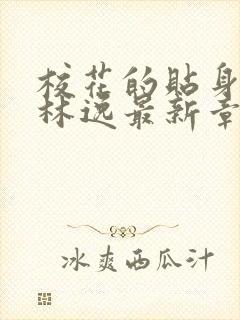 校花的貼身
林逸最新章
冰爽西瓜汁